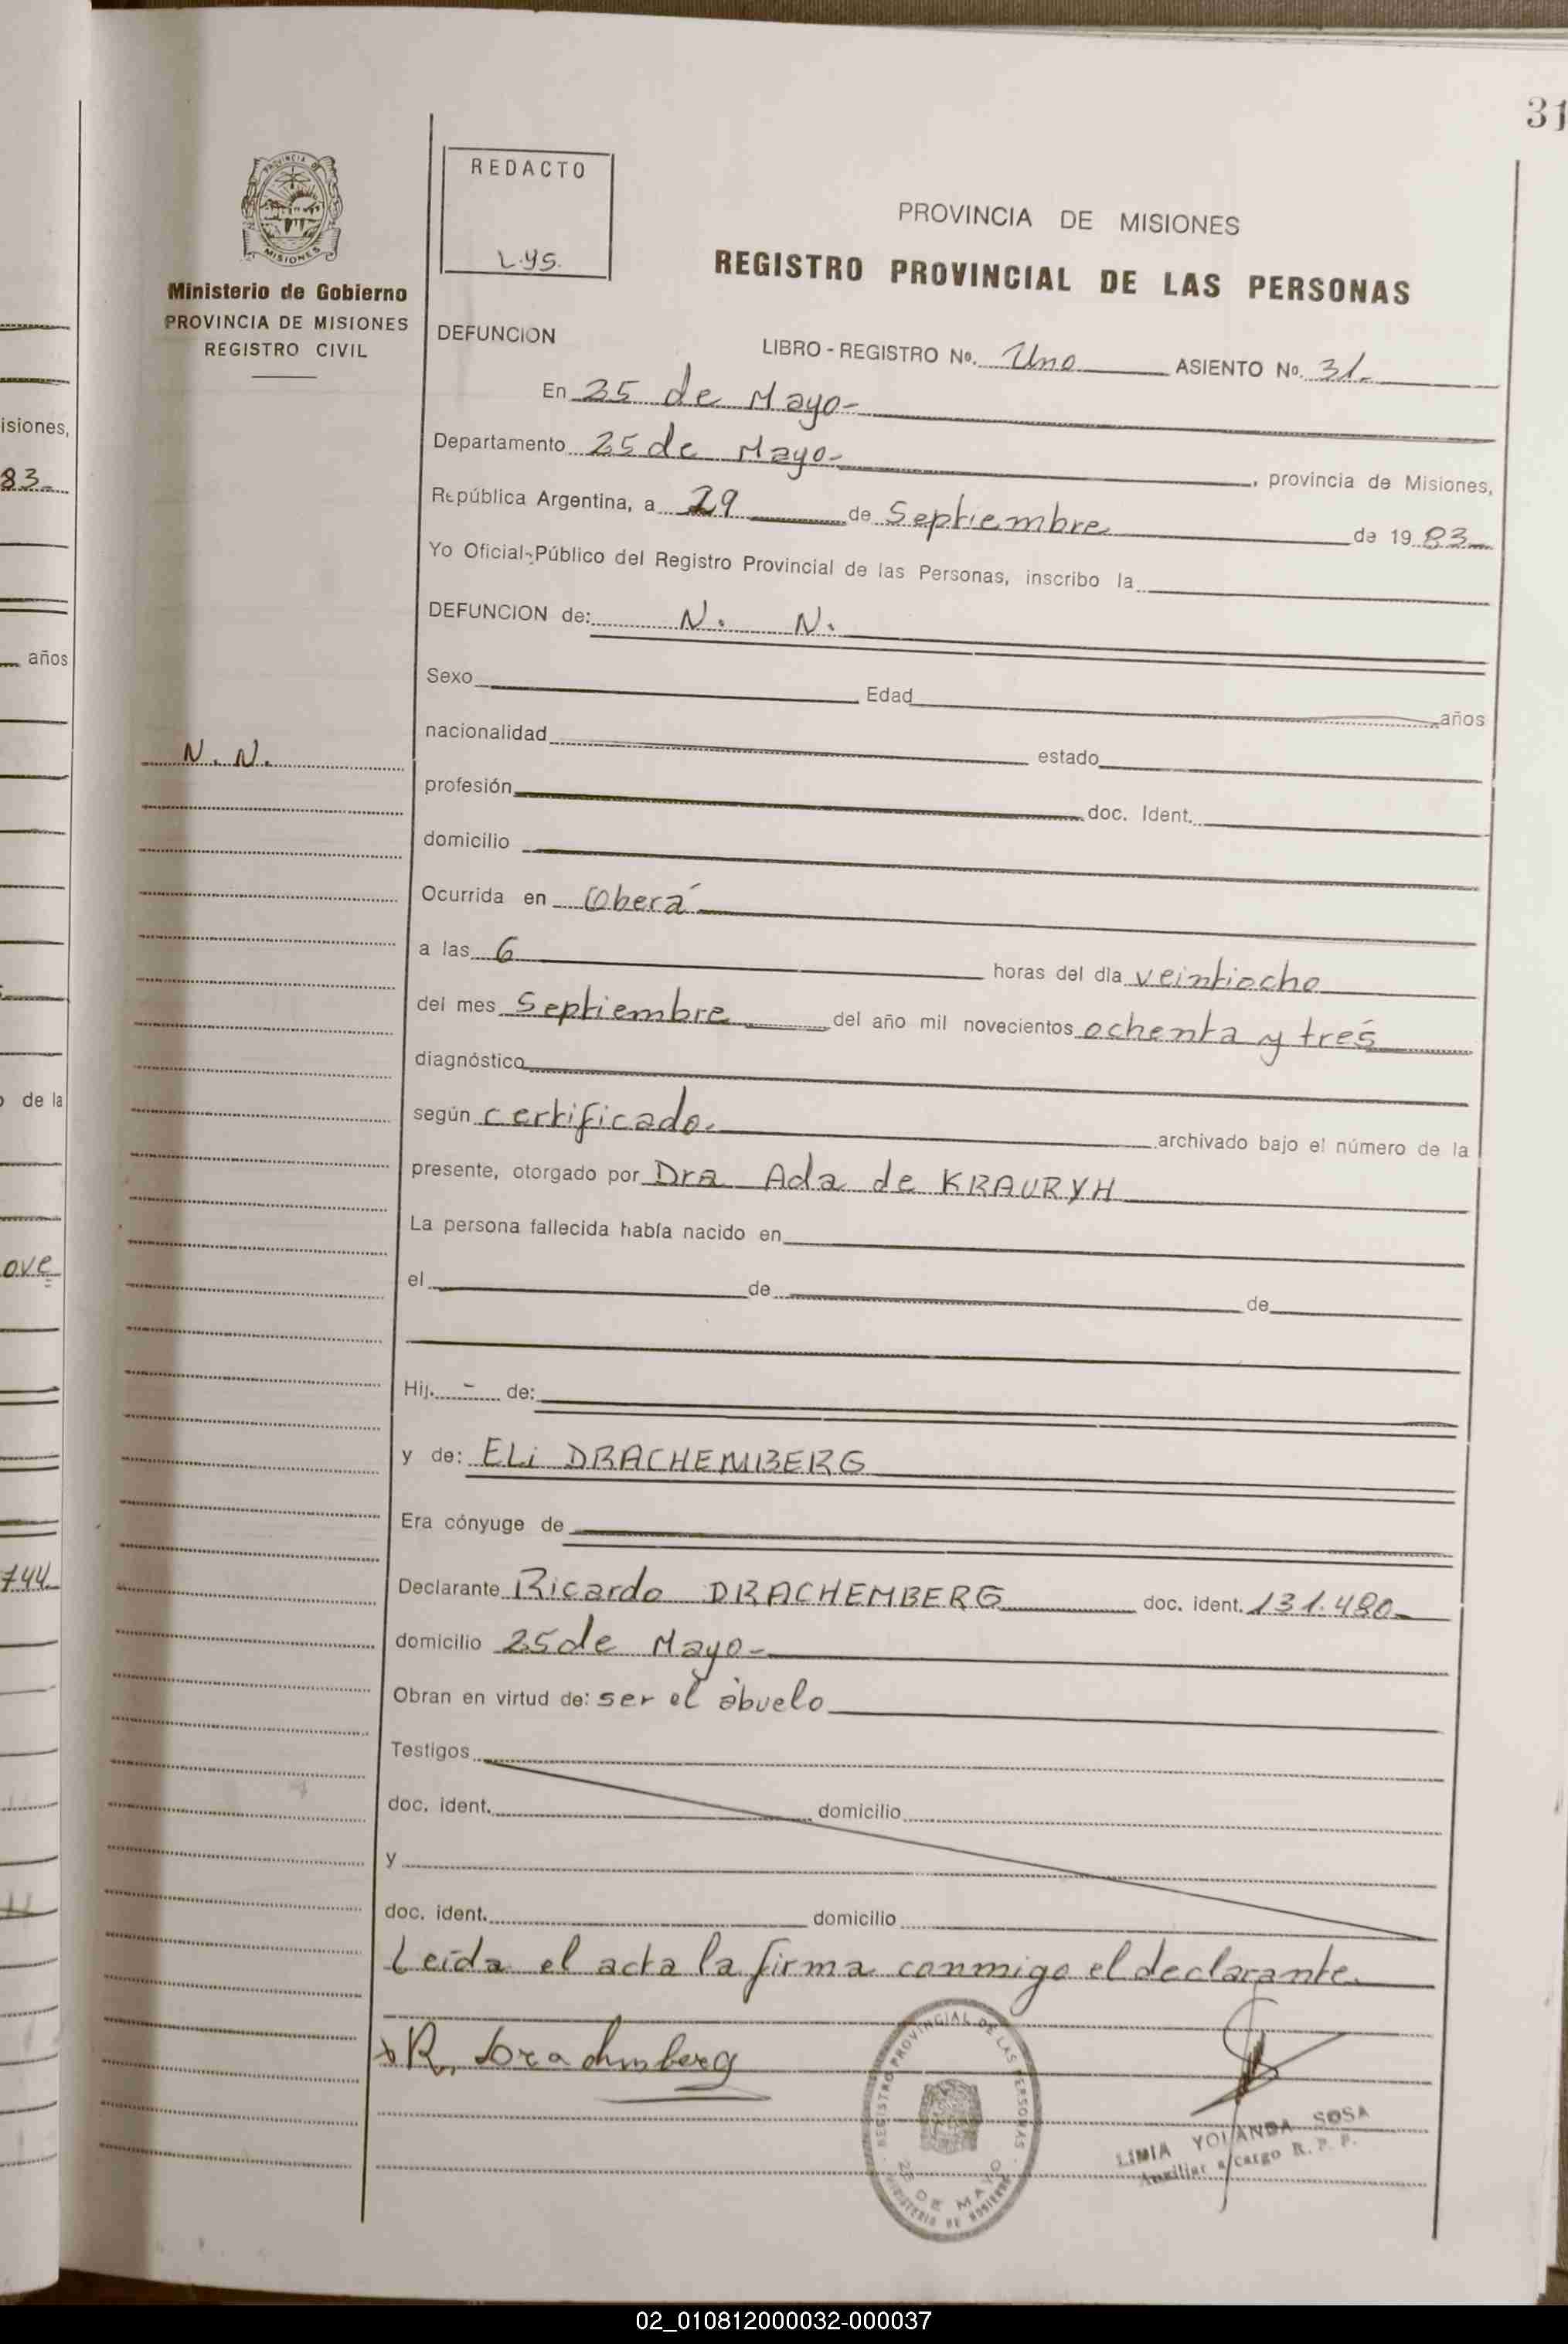 31
REDACTO
L.y.S.
PROVINCIA DE MISIONES
REGISTRO PROVINCIAL DE LAS PERSONAS
PROVINCIA DE
MISIONES
Ministerio de Gobierno
PROVINCIA DE MISIONES
REGISTRO CIVIL
DEFUNCION
LIBRO - REGISTRO Nº. Uno ASIENTO Nº. 31.
En 25 de Mayo-
Departamento 25 de Mayo-, provincia de Misiones,
República Argentina, a 29 de Septiembre de 1983
Yo Oficial Público del Registro Provincial de las Personas, inscribo la
DEFUNCION de: N. N.
Sexo Edad años
nacionalidad estado
N. N.
profesión doc. Ident.
domicilio
Ocurrida en Oberá
a las 6 horas del día veintiocho
del mes Septiembre del año mil novecientos ochenta y tres
diagnóstico
según certificado. archivado bajo el número de la
presente, otorgado por Dra Ada de KRAURYH
La persona fallecida había nacido en
el de de
Hij. - de:
y de: ELi DRACHEMBERG
Era cónyuge de
Declarante Ricardo DRACHEMBERG doc. ident. 131.480
domicilio 25 de Mayo-
Obran en virtud de: ser el abuelo
Testigos
doc. ident. domicilio
y
doc. ident. domicilio
Leída el acta la firma conmigo el declarante.
R. Drachmberg
REGISTRO PROVINCIAL DE LAS PERSONAS
25 DE MAYO
MINISTERIO DE GOBIERNO
LIMIA YOLANDA SOSA
Auxiliar a/cargo R. P. P.
isiones,
83
años
de la
ove
744
02_010812000032-000037